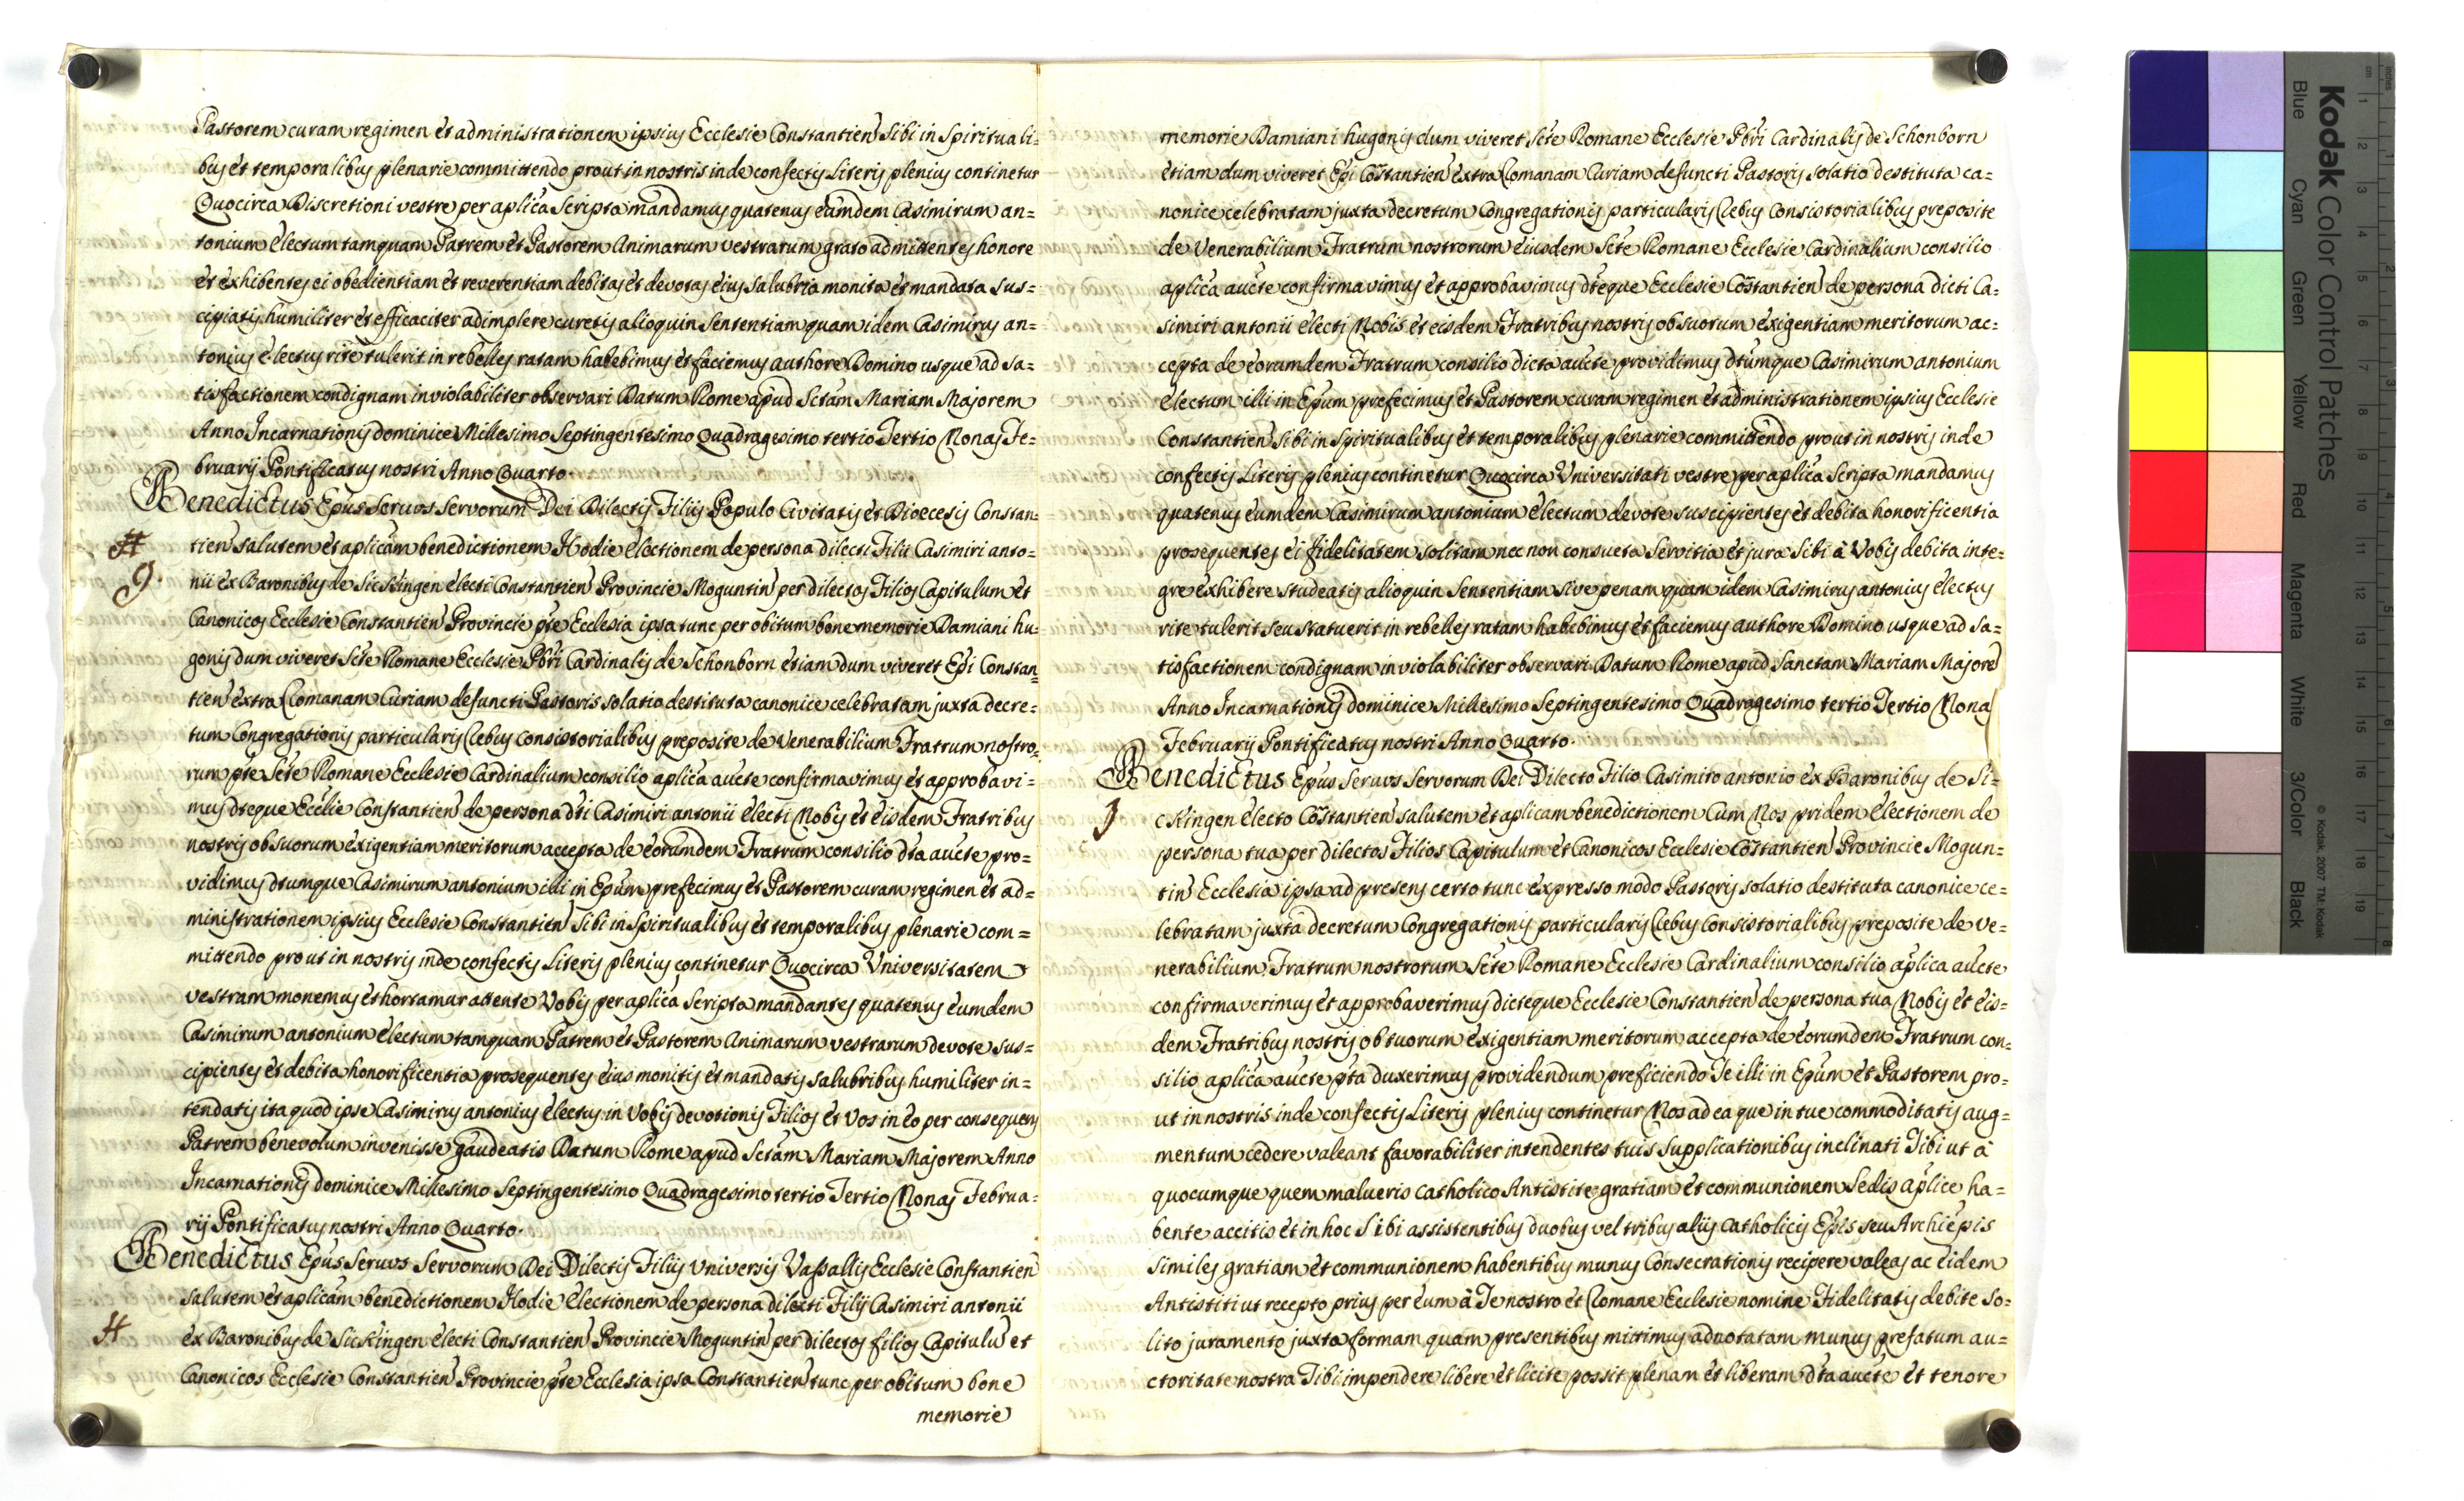 Pastorem curam regimen et administrationem ipsius Ecclesie Constantien̄ Sibi in Spirituali=
bus et temporalibus plenarie committendo prout in nostris inde confectis Literis plenius continetur
Quocirca Discretioni vestre per aplica Scripta mandamus quatenus eumdem Casimirum an=
tonium electum tamquam Patrem et Pastorem Animarum vestrarum grato admittentes honore
et exhibentes ei obedientiam et reverentiam debitas et devotas eius Salubria monita et mandata sus=
cipiatis humiliter et efficaciter adimplere curetis alioquin Sententiam quam idem Casimirus an=
tonius electus rite tulerit in rebelles ratam habebimus et faciemus authore Domino usque ad sa=
tisfactionem condignam inviolabiliter observari Datum Rome apud Sctam Mariam Majorem
Anno Incarnationis dominice Millesimo Septingentesimo Quadragesimo tertio Tertio Nonas Fe=
bruarij Pontificatus nostri Anno Quarto.
Benedictus Epus Servus Servorum Dei Dilectis Filijs Populo Civitatis et Diocesis Constan=
tien̄ salutem et aplicam benedictionem Hodie electionem de persona dilecti Filii Casimiri anto=
9.
nii ex Baronibus de Sickingen electi Constantien̄ Provincie Moguntin̄ per dilectos Filios Capitulum et
Canonicos Ecclesie Constantien̄ Provincie pte Ecclesia ipsa tunc per obitum bone memorie Damiani hu=
gonis dum viveret Scte Romane Ecclesie Pbri Cardinalis de Schonborn etiam dum viveret Epi Constan=
tien̄ extra Romanam Curiam defuncti Pastoris solatio destituta canonice celebratam juxta decre=
tum Congregationis particularis Rebus Consistorialibus preposite de Venerabilium Fratrum nostro=
rum pte Scte Romane Ecclesie Cardinalium consilio aplica aucte confirmavimus et approbavi=
mus dteque Ecclie Constantien̄ de persona dti Casimiri antonii electi Nobis et eisdem Fratribus
nostris ob suorum exigentiam meritorum accepta de eorumdem Fratrum consilio dta aucte pro=
vidimus dtumque Casimirum antonium illi in Epum prefecimus et Pastorem curam regimen et ad=
ministrationem ipsius Ecclesie Constantien̄ Sibi in Spiritualibus et temporalibus plenarie com=
mittendo prout in nostris inde confectis Literis plenius continetur Quocirca Universitatem
vestram monemus et hortamur attente Vobis per aplica Scripta mandantes quatenus eumdem
Casimirum antonium electum tamquam Patrem et Pastorem Animarum vestrarum devote sus=
cipientes et debita honorificentia prosequentes eius monitis et mandatis salubribus humiliter in=
tendatis ita quod ipse Casimirus antonius electus in Vobis devotionis Filios et Vos in eo per consequens
Patrem benevolum invenisse gaudeatis Datum Rome apud Sctam Mariam Majorem Anno
Incarnationis dominice Millesimo Septingentesimo Quadragesimo tertio Tertio Nonas Februa=
rij Pontificatus nostri Anno Quarto.
Benedictus Epus Servus Servorum Dei Dilectis Filijs Universis Vassallis Ecclesie Constantien̄
salutem et aplicam benedictionem Hodie Electionem de persona dilecti Filij Casimiri antonii
ex Baronibus de Sickingen electi Constantien̄ Provincie Moguntin̄ per dilectos filios Capitulū et
Canonicos Ecclesie Constantien̄ Provincie pte Ecclesia ipsa Constantien̄ tunc per obitum bone
memorie
memorie Damiani hugonis dum viveret Scte Romane Ecclesie Pbri Cardinalis de Schonborn
etiam dum viveret Epi Cōstantien̄ extra Romanam Curiam defuncti Pastoris solatio destituta ca=
nonice celebratam juxta decretum Congregationis particularis Rebus Consistorialibus preposite
de Venerabilium Fratrum nostrorum eiusdem Scte Romane Ecclesie Cardinalium consilio
aplica aucte confirmavimus et approbavimus dteque Ecclesie Cōstantien̄ de persona dicti Ca=
simiri antonii electi Nobis et eisdem Fratribus nostris ob suorum exigentiam meritorum ac=
cepta de eorumdem Fratrum consilio dicta aucte providimus dtumque Casimirum antonium
electum illi in Epum prefecimus et Pastorem curam regimen et administrationem ipsius Ecclesie
Constantien̄ Sibi in Spiritualibus et temporalibus plenarie committendo prout in nostris inde
confectis Literis plenius continetur Quocirca Universitati vestre per aplica Scripta mandamus
quatenus eumdem Casimirum antonium electum devote suscipientes et debita honorificentia
prosequentes ei fidelitatem solitam nec non consueta Servitia et jura Sibi à Vobis debita inte=
gre exhibere studeatis alioquin Sententiam sive penam quam idem Casimirus antonius electus
rite tulerit seu statuerit in rebelles ratam habebimus et faciemus authore Domino usque ad sa=
tisfactionem condignam inviolabiliter observari Datum Rome apud Sanctam Mariam Majorē
Anno Incarnationis dominice Millesimo Septingentesimo Quadragesimo tertio Tertio Nonas
Februarij Pontificatus nostri Anno Quarto.
Benedictus Epus Servus Servorum Dei Dilecto Filio Casimiro antonio ex Baronibus de Si=
ckingen electo Cōstantien̄ salutem et aplicam benedictionem Cum Nos pridem electionem de
persona tua per dilectos Filios Capitulum et Canonicos Ecclesie Cōstantien̄ Provincie Mogun=
tin̄ Ecclesia ipsa ad presens certo tunc expresso modo Pastoris solatio destituta canonice ce=
lebratam juxta decretum Congregationis particularis Rebus Consistorialibus preposite de Ve=
nerabilium Fratrum nostrorum Scte Romane Ecclesie Cardinalium consilio aplica aucte
confirmaverimus et approbaverimus dicteque Ecclesie Constantien̄ de persona tua Nobis et eis=
dem Fratribus nostris ob tuorum exigentiam meritorum accepta de eorumdem Fratrum con=
silio aplica aucte pta duxerimus providendum preficiendo Te illi in Epum et Pastorem pro=
ut in nostris inde confectis Literis plenius continetur Nos ad ea que in tue commoditatis aug=
mentum cedere valeant favorabiliter intendentes tuis Supplicationibus inclinati Tibi ut à
quocumque quem malueris Catholico Antistite gratiam et communionem Sedis aplice ha=
bente accitis et in hoc Sibi assistentibus duobus vel tribus aliis Catholicis Epis seu Archiepis
similes gratiam et communionem habentibus munus Consecrationis recipere valeas ac eidem
Antistiti ut recepto prius per eum à Te nostro et Romane Ecclesie nomine Fidelitatis debite so=
lito juramento juxta formam quam presentibus mittimus adnotatam munus prefatum au=
ctoritate nostra Tibi impendere libere et licite possit plenam et liberam dta aucte et tenore
Kodak Color Control Patches
Blue Cyan Green Yellow Red Magenta White 3/Color Black
© Kodak, 2007 TM: Kodak
cm 1 2 3 4 5 6 7 8 9 10 11 12 13 14 15 16 17 18 19
inches 1 2 3 4 5 6 7 8